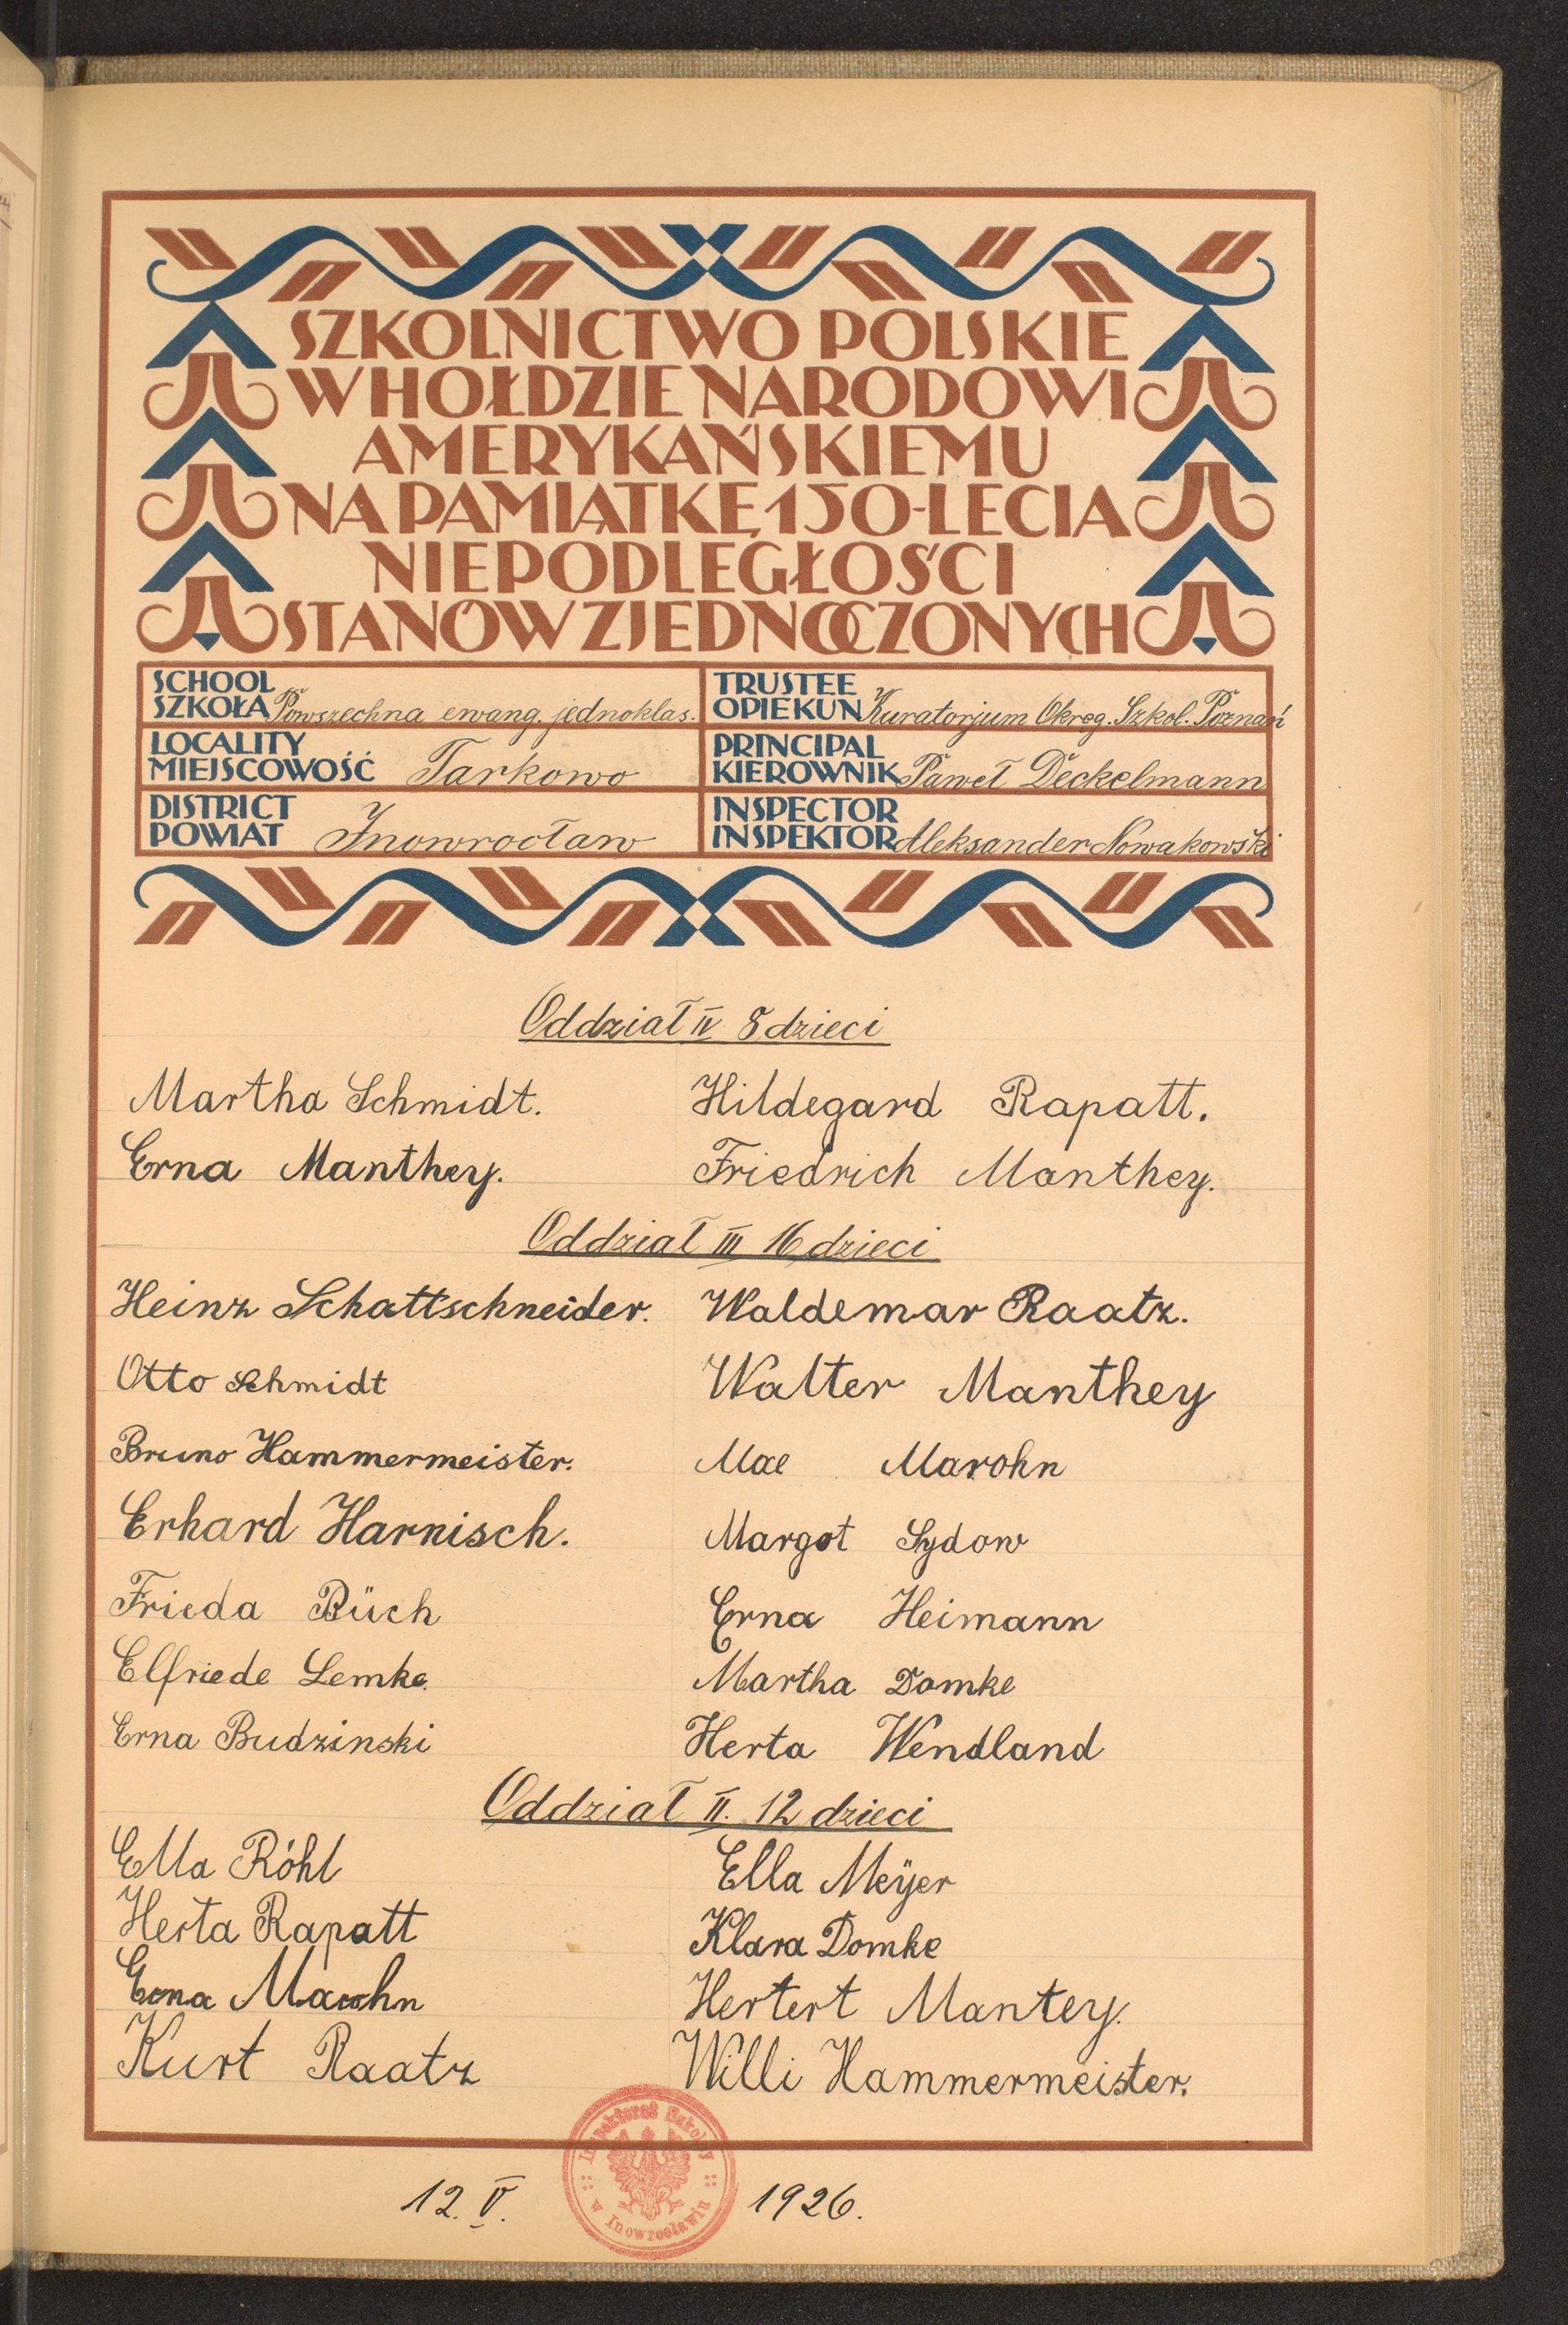 SZKOLNICTWO POLSKIE
W HOŁDZIE NARODOWI
AMERYKAŃSKIEMU
NA PAMIĄTKĘ 150-LECIA
NIEPODLEGŁOŚCI
STANÓW ZJEDNOCZONYCH
SCHOOL
SZKOŁA Powszechna ewang. jednoklas.
TRUSTEE
OPIEKUN Kuratorjum Okręg. Szkol. Poznań
LOCALITY
MIEJSCOWOŚĆ Tarkowo
PRINCIPAL
KIEROWNIK Paweł Deckelmann
DISTRICT
POWIAT Inowrocław
INSPECTOR
INSPEKTOR Aleksander Nowakowski
Oddział IV 8 dzieci
Martha Schmidt. Hildegard Rapatt.
Erna Manthey. Friedrich Manthey.
Oddział III 16 dzieci
Heinz Schattschneider. Waldemar Raatz.
Otto Schmidt Walter Manthey
Bruno Hammermeister. Max Marohn
Erhard Harnisch. Margot Sydow
Frieda Büch Erna Heimann
Elfriede Lemke. Martha Domke
Erna Budzinski Herta Wendland
Oddział II. 12 dzieci
Ella Röhl Ella Meÿer
Herta Rapatt Klara Domke
Erna Marohn Hertert Mantey.
Kurt Raatz Willi Hammermeister.
Inspektorat Szkolny
w Inowrocławiu
12. V. 1926.